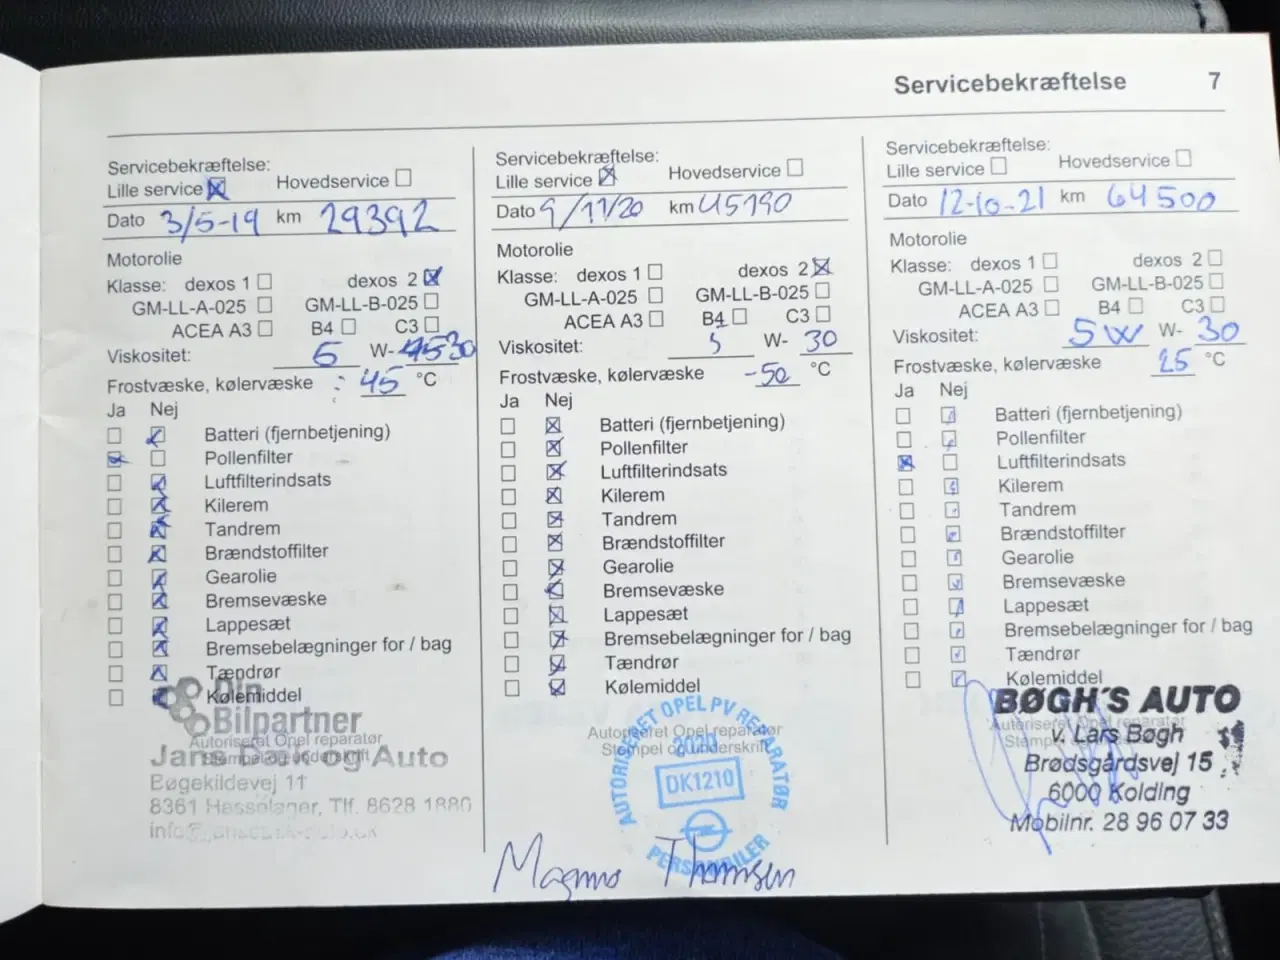 Servicebekræftelse 7
Servicebekræftelse:
Lille service Hovedservice
Dato 3/5-19 km 29392
Motorolie
Klasse: dexos 1 dexos 2
GM-LL-A-025 GM-LL-B-025
ACEA A3 B4 C3
Viskositet: 5 W- 30
Frostvæske, kølervæske -45 °C
Ja Nej
Batteri (fjernbetjening)
Pollenfilter
Luftfilterindsats
Kilerem
Tandrem
Brændstoffilter
Gearolie
Bremsevæske
Lappesæt
Bremsebelægninger for / bag
Tændrør
Kølemiddel
Din
Bilpartner
Autoriseret Opel reparatør
Stempel og underskrift
Auto
Bøgekildevej 11
8361 Hasselager, Tlf. 8628 1880
Servicebekræftelse:
Lille service Hovedservice
Dato 9/11/20 km 45190
Motorolie
Klasse: dexos 1 dexos 2
GM-LL-A-025 GM-LL-B-025
ACEA A3 B4 C3
Viskositet: 5 W- 30
Frostvæske, kølervæske -50 °C
Ja Nej
Batteri (fjernbetjening)
Pollenfilter
Luftfilterindsats
Kilerem
Tandrem
Brændstoffilter
Gearolie
Bremsevæske
Lappesæt
Bremsebelægninger for / bag
Tændrør
Kølemiddel
Autoriseret Opel reparatør
Stempel og underskrift
AUTORISERET OPEL PV REPARATØR
DK1210
PERSONBILER
Magnus Thomsen
Servicebekræftelse:
Lille service Hovedservice
Dato 12-10-21 km 64500
Motorolie
Klasse: dexos 1 dexos 2
GM-LL-A-025 GM-LL-B-025
ACEA A3 B4 C3
Viskositet: 5W W- 30
Frostvæske, kølervæske 25 °C
Ja Nej
Batteri (fjernbetjening)
Pollenfilter
Luftfilterindsats
Kilerem
Tandrem
Brændstoffilter
Gearolie
Bremsevæske
Lappesæt
Bremsebelægninger for / bag
Tændrør
Kølemiddel
BØGH'S AUTO
Autoriseret Opel reparatør
v. Lars Bøgh
Brødsgårdsvej 15
6000 Kolding
Mobilnr. 28 96 07 33